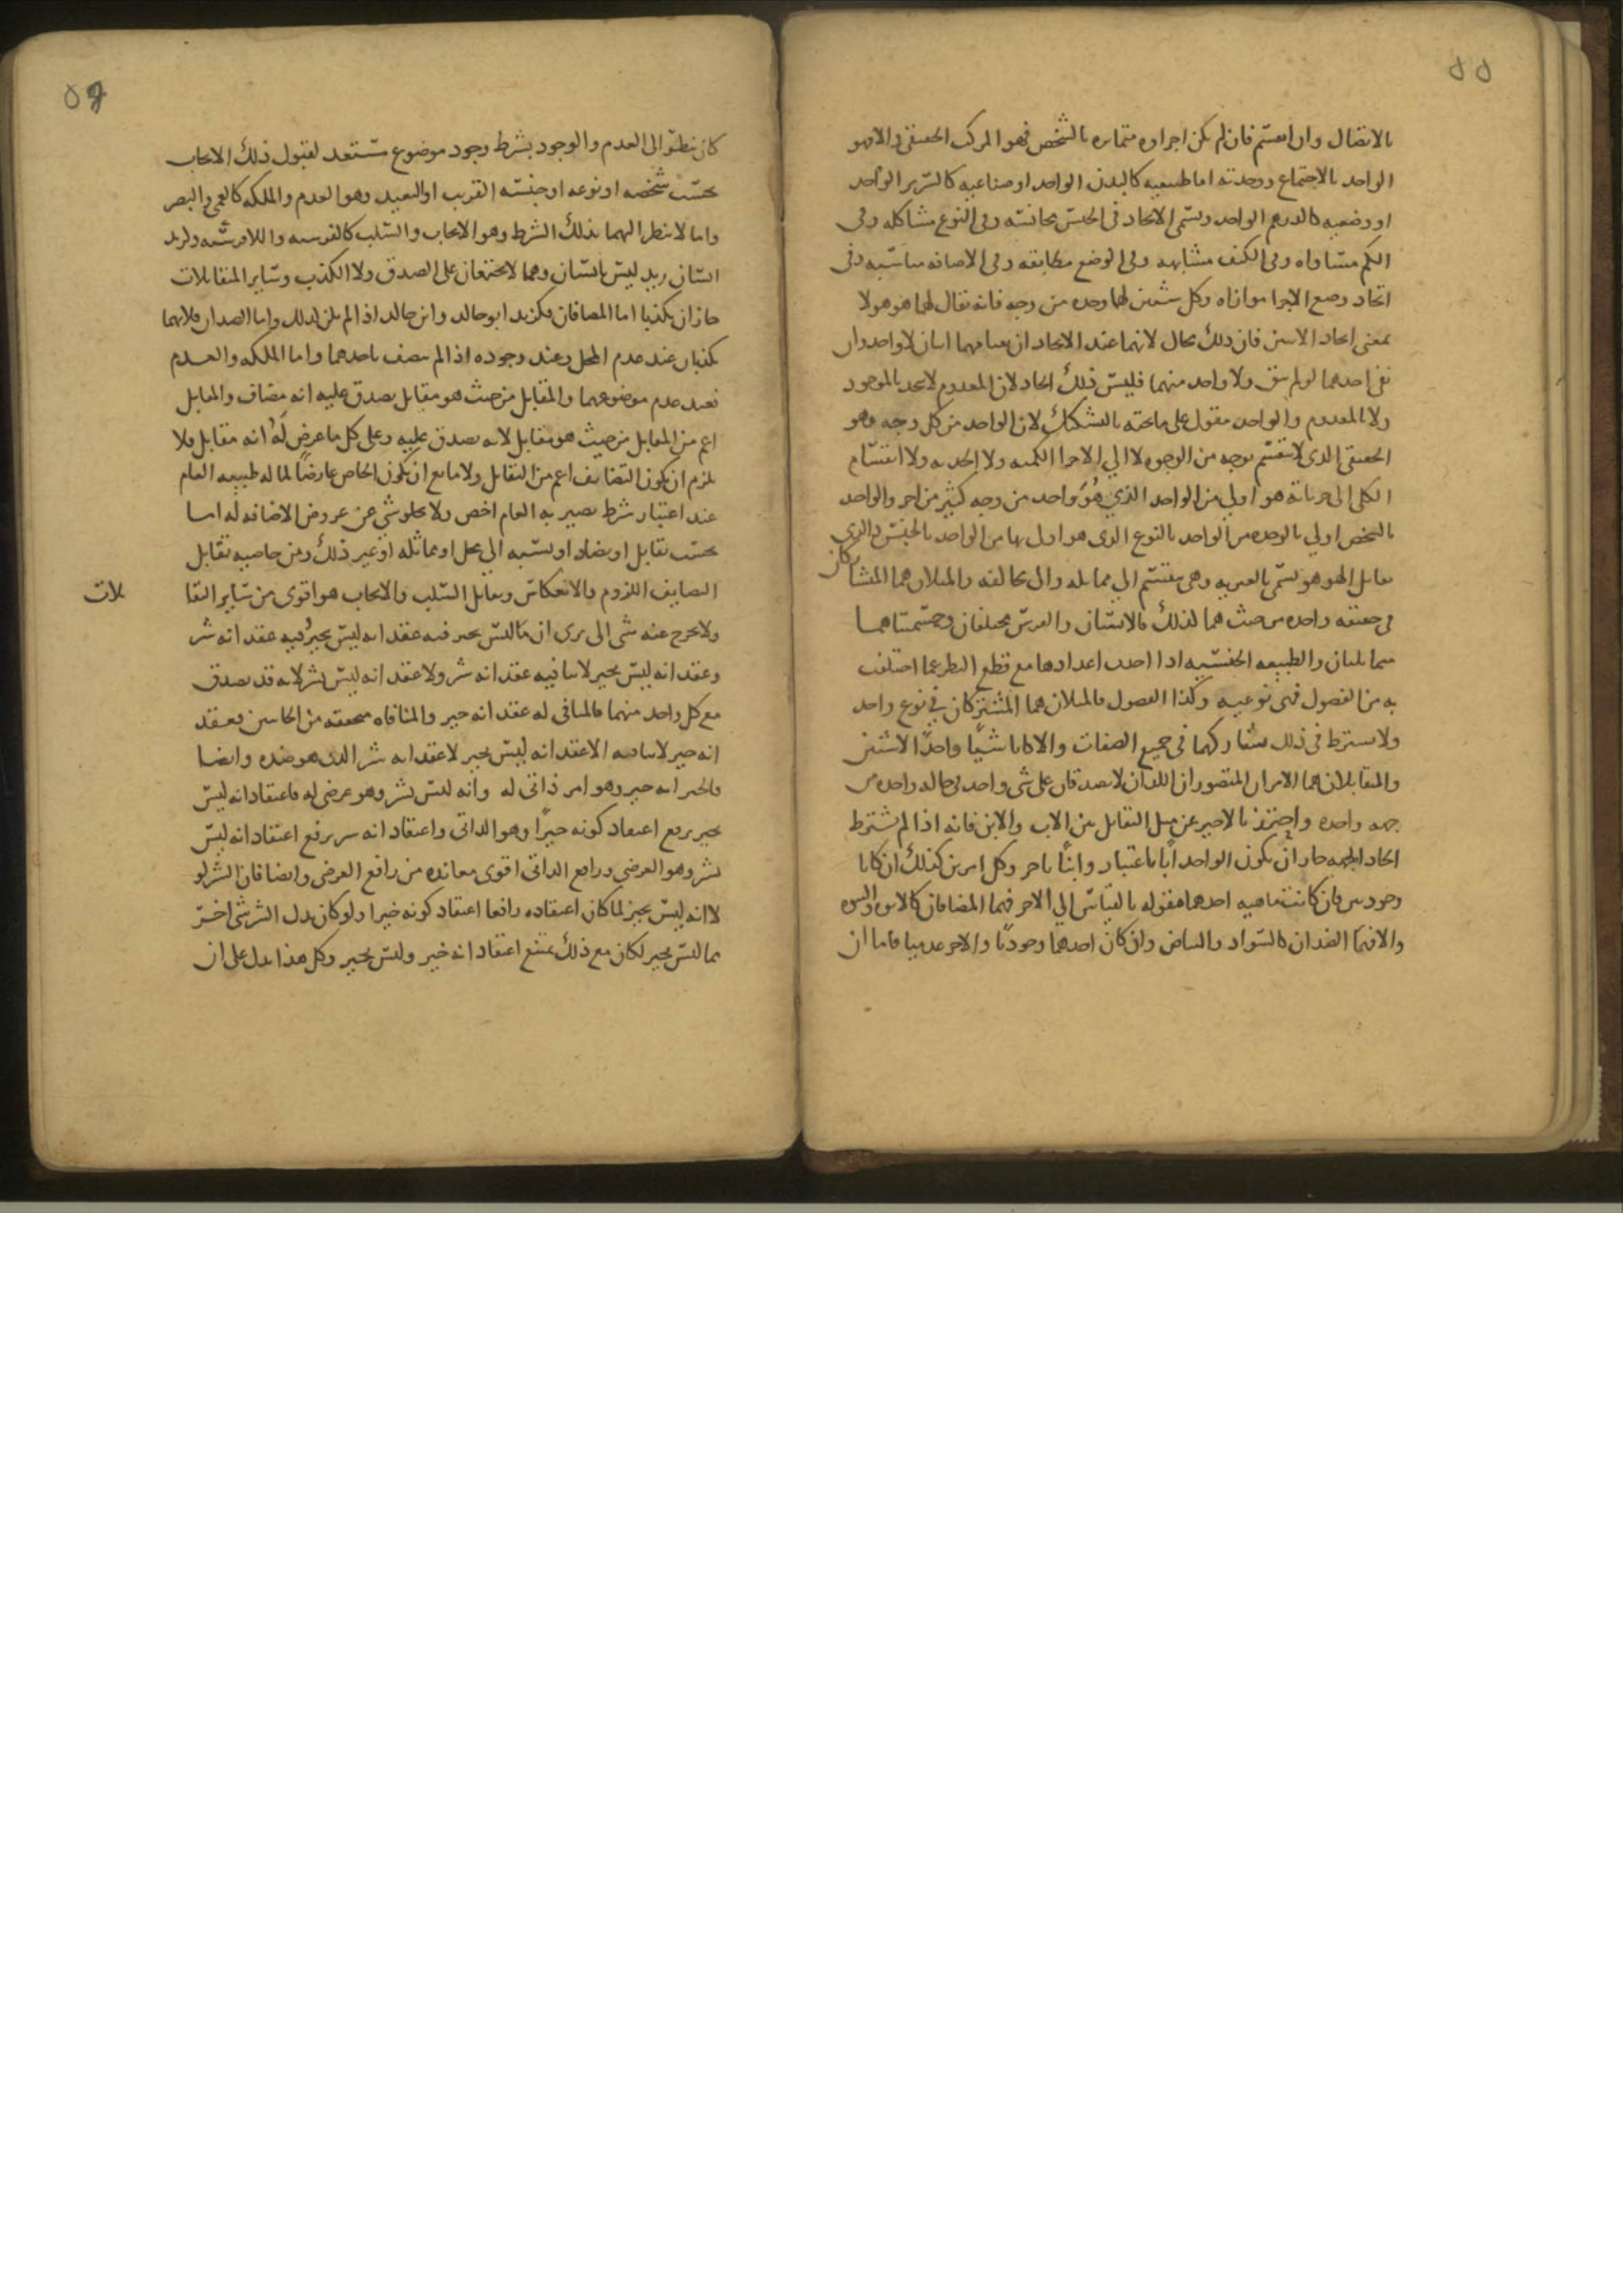 ٥٥
بالاتصال وان انقسم فان لم يكن اجزاوه متمايزه بالشخص فهو المركب الحقيقي والا فهو
الواحد بالاجتماع ووحدته اما طبيعيه كالبدن الواحد او صناعيه كالسرير الواحد
او وضعيه كالدرهم الواحد ويسمى الاتحاد في الجنس مجانسه وفي النوع مشاكله وفي
الكم مساواه وفي الكيف مشابهه وفي الوضع مطابقه وفي الاضافه مناسبه وفي
اتحاد وضع الاجزا موازاه وكل شيين لهما وحده من وجه فانه يقال لهما هو هو لا
بمعنى اتحاد الاثنين فان ذلك محال لانهما عند الاتحاد ان بقيا فهما اثنان لا واحد وان
نفى احدهما او لم يبق ولا واحد منهما فليس ذلك اتحاد لان المعدوم لا يتحد بالموجود
ولا المعدوم والواحد مقول على ما تحته بالتشكيك لان الواحد من كل وجه وهو
الحقيقي الذي لا ينقسم بوجه من الوجوه لا الي الاجزا الكميه ولا الحديه ولا انقسام
الكلى الى جزياته هو اولي من الواحد الذي هُوَ واحد من وجه كثير من اخر والواحد
بالشخص اولي بالوحده من الواحد بالنوع الذي هو اولى بها من الواحد بالجنس والذي
يقابل الهو هو يسمى بالغيريه وهي ينقسم الي مماثله والى مخالفه والمثلان هما المتشاركان
في حقيقه واحده من حيث هما لذلك فالانسان والفرس مختلفان وجسميتاهما
متماثلتان والطبيعه الجنسيه اذا اخذت اعدادها مع قطع النظر عما اختلفت
به من الفصول فهى نوعيه وكذا الفصول فالمثلان هما المشتركان في نوع واحد
ولا يشترط في ذلك تشاركهما في جميع الصفات والا كانا شيًا واحدًا لا شيين
والمتقابلان هما الامران المتصوران اللذان لا يصدقان على شى واحد في حاله واحده من
جهه واحده واحترز بالاخير عن مثل التقابل بين الاب والابن فانه اذا لم يشترط
اتحاد الجهه جاز ان يكون الواحد ابًا باعتبار وابنًا باخر وكل امرين كذلك ان كانا
وجوديين فان كانت ماهيه احدهما مقوله بالقياس الي الاخر فهما المضافان كالابوه والبنوه
والا فهما الضدان كالسواد والبياض وان كان احدهما وجوديًا والاخر عدميا فاما ان
٥٦
كان ينظر الى العدم والوجود بشرط وجود موضوع مستعد لقبول ذلك الايجاب
بحسب شخصه او نوعه او جنسه القريب او البعيد وهو العدم والملكه كالعمى والبصر
واما لا ينظر اليهما بذلك الشرط وهو الايجاب والسلب كالفرسيه واللافرسيه وزيد
انسان زيد ليس بانسان وهما لا يجتمعان على الصدق ولا الكذب وساير المتقابلات
جاز ان يكذبا اما المضافان فكزيد ابو خالد وابن خالد اذا لم يكن كذلك واما الضدان فلانهما
يكذبان عند عدم المحل وعند وجوده اذا لم يتصف باحدهما واما الملكه والعدم
فعند عدم موضوعهما والمتقابل من حيث هو متقابل يصدق عليه انه مضاف والمقابل
اعم من المقابل من حيث هو مقابل لانه يصدق عليه وعلى كل ما عرض لَهُ انه مقابل فلا
يلزم ان يكون التضايف اعم من التقابل ولا مانع ان يكون الخاص عارضًا لما له طبيعه العام
عند اعتبار شرط يصير به العام اخص ولا يخلو شي عن عروض الاضافه له اما
بحسب تقابل او تضاد او نسبه الي محل او مماثله او غير ذلك ومن خاصيه تقابل
التضايف اللزوم والانعكاس وتقابل السلب والايجاب هو اقوى من ساير التقا
بلات
ولا يخرج عنه شى الى يرى ان ما ليس بخير فيه عقد انه ليس بخير وفيه عقد انه شر
وعقد انه ليس بخير لا ينافيه عقد انه شر ولا عقد انه ليس بشر لانه قد يصدق
مع كل واحد منهما فالمنافي له عقد انه خير والمنافاه متحققه من الجانبين فعقد
انه خير لا ينافيه الا عقد انه ليس بخير لا عقد انه شر الذي هو ضده وايضا
فالخير انه خير وهو امر ذاتي له وانه ليس بشر وهو عرضي له فاعتقاد انه ليس
بخير يرفع اعتقاد كونه خيرًا وهو الذاتي واعتقاد انه شر يرفع اعتقاد انه ليس
بشر وهو العرضي ورافع الذاتى اقوى معانده من رافع العرضى وايضا فان الشر لو
لا انه ليس بخير لما كان اعتقاده رافعا اعتقاد كونه خيرا ولو كان بدل الشر شى اخر
مما ليس بخير لكان مع ذلك يمتنع اعتقاد انه خير وليس بخير وكل هذا يدل على ان